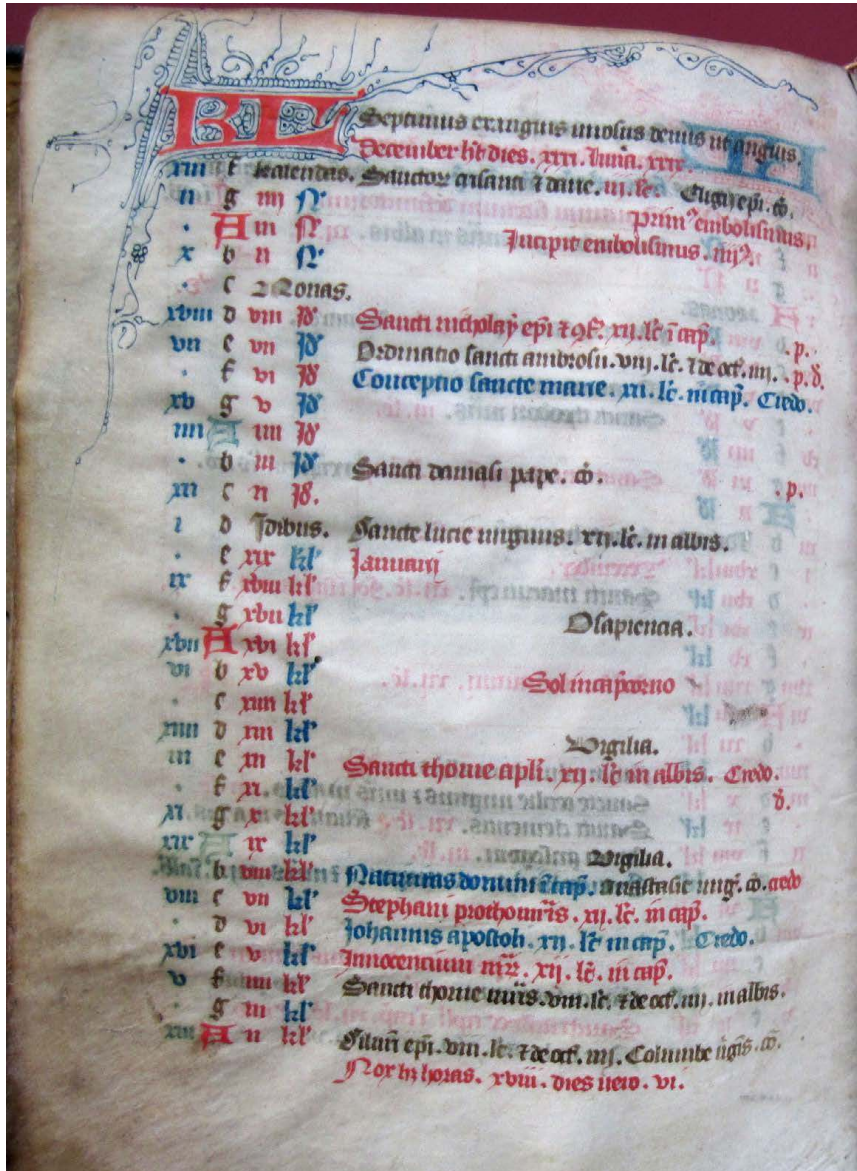 KL Septimus exanguis virosus denus ut anguis.
December ht dies. xxxi. luna. xxx.
xiii f kalendas. Sanctor crisanti ⁊ darie. iii. lc. Eligij epi. co.
ii g iiii N prim⁹ embolismus
. A iii N Incipit embolismus. iii⁹.
x b ii N
. c Nonas.
xviii d viii Id Sancti nicholay epi ⁊ ɔf. xii. lc ī cap̄. . p.
vii e vii Id Ordinatio sancti ambrosii. viij. lc. ⁊ de oct. iiij. . p. d.
. f vi Id Conceptio sancte marie. xii. lc. in cap̄. Credo.
xv g v Id
iiii A iiii Id
. b iii Id Sancti damasi pape. co. . p.
xii c ii Id.
i d Idibus. Sancte lucie virginis. xij. lc. in albis.
. e xix kl Januarij
ix f xviii kl
. g xvii kl O sapiencia.
xvii A xvi kl
vi b xv kl Sol in cap̄corno
. c xiiii kl
xiiii d xiii kl Vigilia.
iii e xii kl Sancti thome apli. xij. lc in albis. Credo.
. f xi. kl d.
xi g x kl
xix A ix kl Vigilia.
. b viii kl Natiuitas domini ī cap̄. anastasie virg. co. credo
viii c vii kl Stephani prothomris. xij. lc. in cap̄.
. d vi kl Johannis apostoli. xij. lc in cap̄. Credo.
xvi e v kl Innocencium mr̄. xij. lc. in cap̄.
v f iiii kl Sancti thome mris. viii. lc. ⁊ de oct. iiij. in albis.
. g iii kl
xiii A ii kl Siluri epi. viii. lc. ⁊ de oct. iiij. Columbe v̄gis. co.
Nox hz horas. xviii. dies uero. vi.